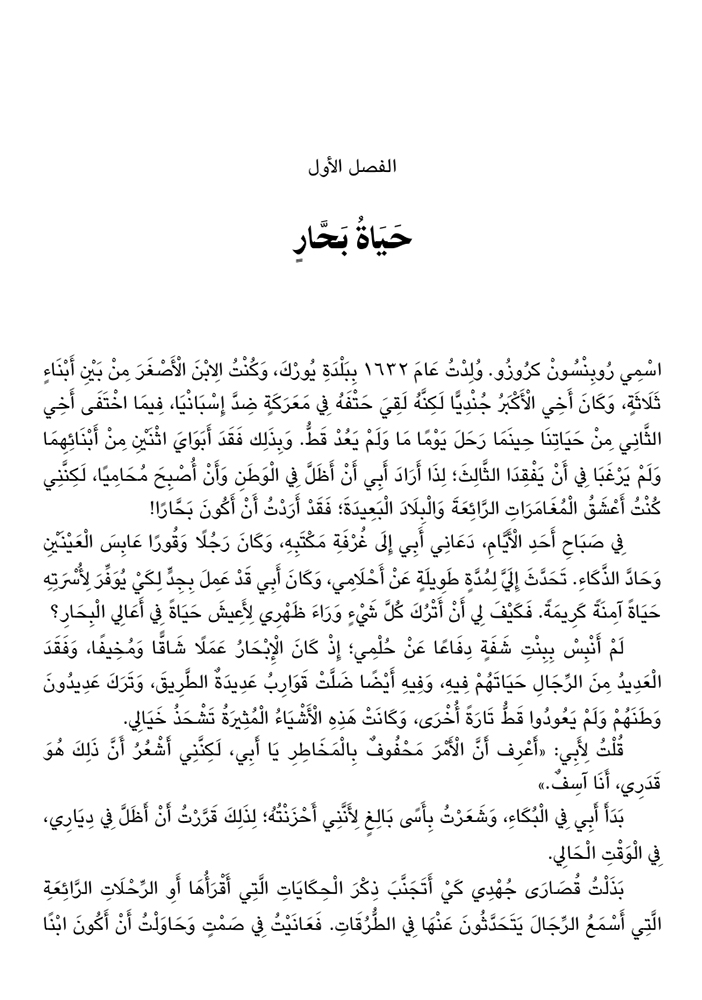 الفصل الأول
حَيَاةُ بَحَّارٍ
اسْمِي رُوبِنْسُونْ كرُوزُو. وُلِدْتُ عَامَ ١٦٣٢ بِبَلْدَةِ يُورْكَ، وَكُنْتُ الِابْنَ الْأَصْغَرَ مِنْ بَيْنِ أَبْنَاءٍ
ثَلَاثَةٍ، وَكَانَ أَخِي الْأَكْبَرُ جُنْدِيًّا لَكِنَّهُ لَقِيَ حَتْفَهُ فِي مَعَرَكَةٍ ضِدَّ إِسْبَانْيَا، فِيمَا اخْتَفَى أَخِي
الثَّانِي مِنْ حَيَاتِنَا حِينَمَا رَحَلَ يَوْمًا مَا وَلَمْ يَعُدْ قَطُّ. وَبِذَلِك فَقَدَ أَبَوَايَ اثْنَيْنِ مِنْ أَبْنَائِهِمَا
وَلَمْ يَرْغَبَا فِي أَنْ يَفْقِدَا الثَّالِثَ؛ لِذَا أَرَادَ أَبِي أَنْ أَظَلَّ فِي الْوَطَنِ وَأَنْ أُصْبِحَ مُحَامِيًا، لَكِنَّنِي
كُنْتُ أَعْشَقُ الْمُغَامَرَاتِ الرَّائِعَةَ وَالْبِلَادَ الْبَعِيدَةَ؛ فَقَدْ أَرَدْتُ أَنْ أَكُونَ بَحَّارًا!
فِي صَبَاحِ أَحَدِ الْأَيَّامِ، دَعَانِي أَبِي إِلَى غُرْفَةِ مَكْتَبِهِ، وَكَانَ رَجُلًا وَقُورًا عَابِسَ الْعَيْنَيْنِ
وَحَادَّ الذَّكَاءِ. تَحَدَّثَ إِلَيَّ لِمُدَّةٍ طَوِيلَةٍ عَنْ أَحْلَامِي، وَكَانَ أَبِي قَدْ عَمِلَ بِجِدٍّ لِكَيْ يُوَفِّرَ لِأُسْرَتِهِ
حَيَاةً آمِنَةً كَرِيمَةً. فَكَيْفَ لِي أَنْ أَتْرُكَ كُلَّ شَيْءٍ وَرَاءَ ظَهْرِي لِأَعِيشَ حَيَاةً فِي أَعَالِي الْبِحَارِ؟
لَمْ أَنْبِسْ بِبِنْتِ شَفَةٍ دِفَاعًا عَنْ حُلْمِي؛ إِذْ كَانَ الْإِبْحَارُ عَمَلًا شَاقًّا وَمُخِيفًا، وَفَقَدَ
الْعَدِيدُ مِنَ الرِّجَالِ حَيَاتَهُمْ فِيهِ، وَفِيهِ أَيْضًا ضَلَّتْ قَوَارِبُ عَدِيدَةٌ الطَّرِيقَ، وَتَرَكَ عَدِيدُونَ
وَطَنَهُمْ وَلَمْ يَعُودُوا قَطُّ تَارَةً أُخْرَى، وَكَانَتْ هَذِهِ الْأَشْيَاءُ الْمُثِيرَةُ تَشْحَذُ خَيَالِي.
قُلْتُ لِأَبِي: «أَعْرِف أَنَّ الْأَمْرَ مَحْفُوفٌ بِالْمَخَاطِرِ يَا أَبِي، لَكِنَّنِي أَشْعُرُ أَنَّ ذَلِكَ هُوَ
قَدَرِي، أَنَا آسِفٌ.»
بَدَأَ أَبِي فِي الْبُكَاءِ، وَشَعَرْتُ بِأَسًى بَالِغٍ لِأَنَّنِي أَحْزَنْتُهُ؛ لِذَلِكَ قَرَّرْتُ أَنْ أَظَلَّ فِي دِيَارِي،
فِي الْوَقْتِ الْحَالِي.
بَذَلْتُ قُصَارَى جُهْدِي كَيْ أَتَجَنَّبَ ذِكْرَ الْحِكَايَاتِ الَّتِي أَقْرَأُهَا أَوِ الرِّحْلَاتِ الرَّائِعَةِ
الَّتِي أَسْمَعُ الرِّجَالَ يَتَحَدَّثُونَ عَنْهَا فِي الطُّرُقَاتِ. فَعَانَيْتُ فِي صَمْتٍ وَحَاوَلْتُ أَنْ أَكُونَ ابْنًا